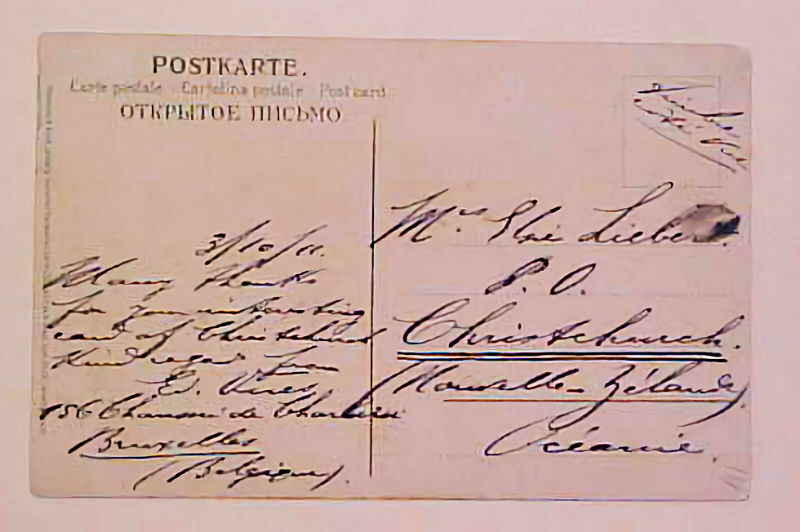 POSTKARTE.
Carte postale Cartolina postale Post card
ОТКРЫТОЕ ПИСЬМО
3/10/11.
Many thanks
for your interesting
card of Christchurch
Kind regards from
Ed.
156 Chaussée de Charleroi
Bruxelles
(Belgique).
Timbre
côté vue
Elsie
P. O.
Christchurch.
Nouvelle-Zélande,
Océanie.